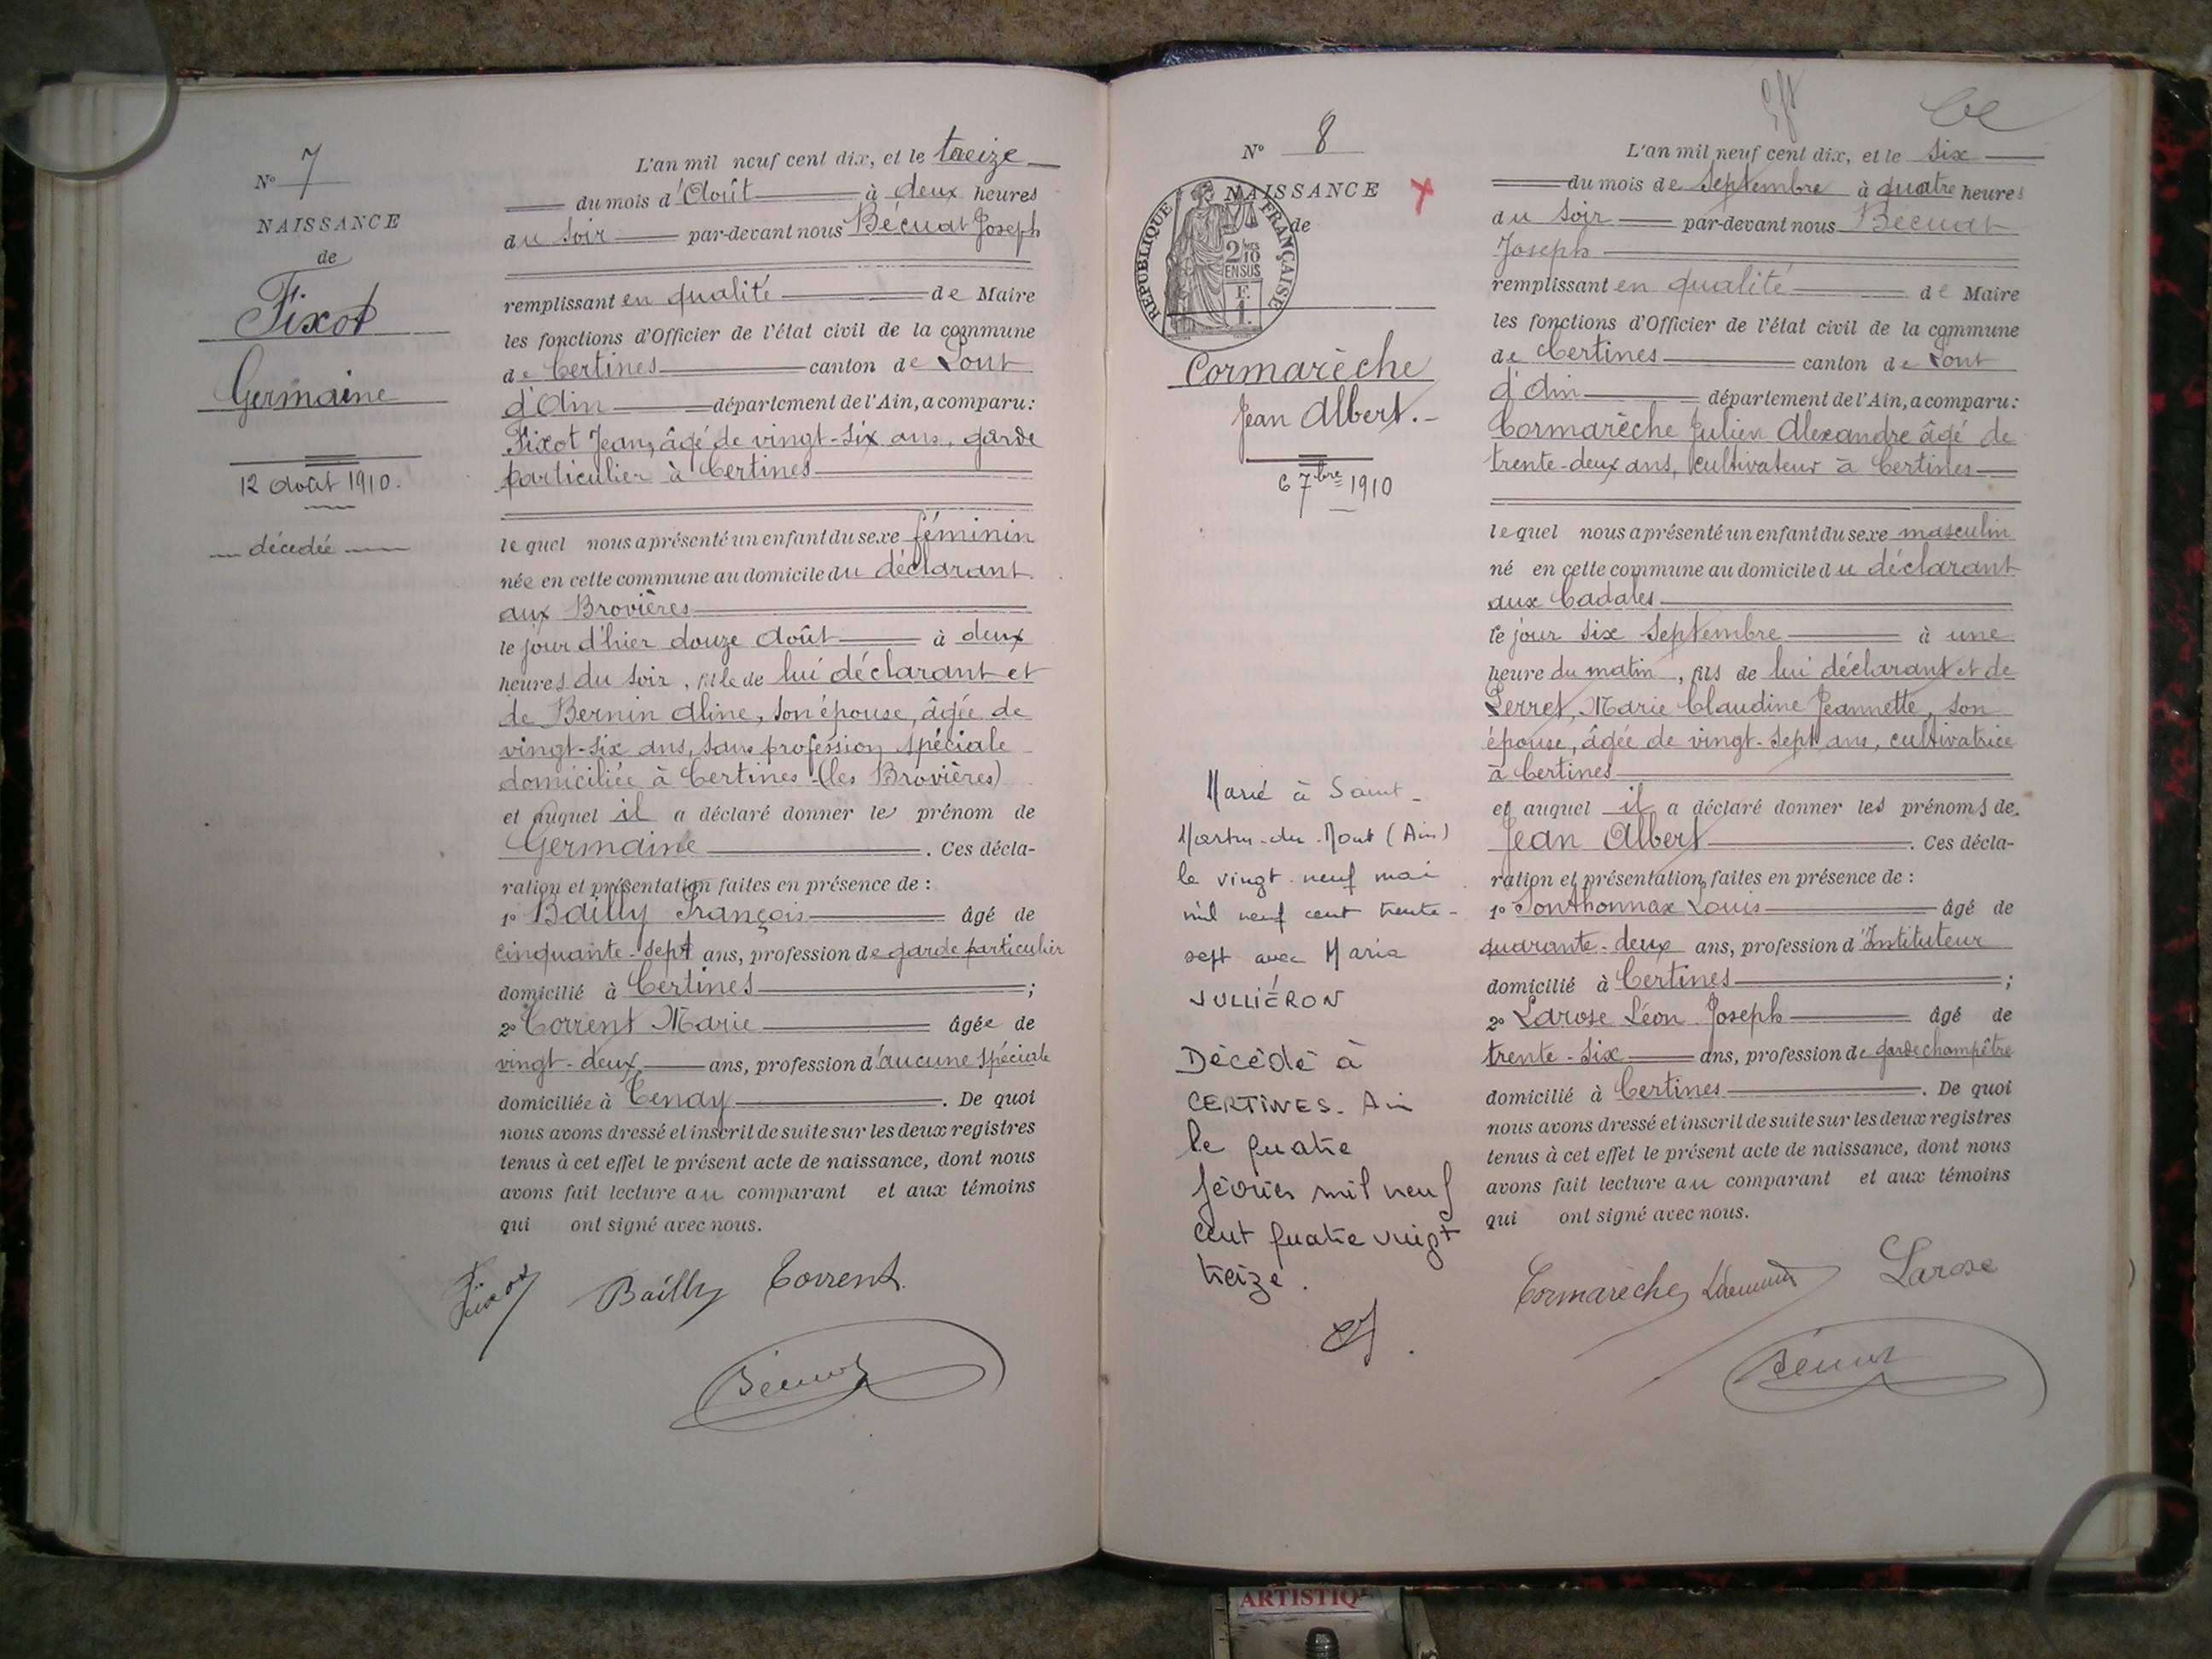 N° 7
NAISSANCE
de
Fixot
Germaine
12 Août 1910.
décédée
L'an mil neuf cent dix, et le treize
du mois d'Août à deux heures
du soir par-devant nous Bécuat Joseph
remplissant en qualité de Maire
les fonctions d'Officier de l'état civil de la commune
de Certines canton de Pont
d'Ain département de l'Ain, a comparu:
Fixot Jean, âgé de vingt-six ans, garde
particulier à Certines
lequel nous a présenté un enfant du sexe féminin
née en cette commune au domicile du déclarant
aux Brovières
le jour d'hier douze Août à deux
heures du soir, fille de lui déclarant et
de Bernin Aline, son épouse, âgée de
vingt-six ans, sans profession spéciale
domiciliée à Certines (les Brovières)
et auquel il a déclaré donner le prénom de
Germaine. Ces décla-
ration et présentation faites en présence de :
1° Bailly François âgé de
cinquante-sept ans, profession de garde particulier
domicilié à Certines ;
2° Corrent Marie âgée de
vingt-deux ans, profession d'aucune spéciale
domiciliée à Cenay. De quoi
nous avons dressé et inscrit de suite sur les deux registres
tenus à cet effet le présent acte de naissance, dont nous
avons fait lecture au comparant et aux témoins
qui ont signé avec nous.
Fixot Bailly Corrent
Bécuat
N° 8
NAISSANCE
de
RÉPUBLIQUE FRANÇAISE
2/10 EN SUS
Cormarèche
Jean Albert.-
6 7bre 1910
Marié à Saint-
Martin-du-Mont (Ain)
le vingt-neuf mai
mil neuf cent trente-
sept avec Maria
JULLIÉRON
Décédé à
CERTINES. Ain
le quatre
février mil neuf
cent quatre vingt
treize.
L'an mil neuf cent dix, et le six
du mois de septembre à quatre heures
du soir par-devant nous Bécuat
Joseph
remplissant en qualité de Maire
les fonctions d'Officier de l'état civil de la commune
de Certines canton de Pont
d'Ain département de l'Ain, a comparu:
Cormarèche Julien Alexandre âgé de
trente-deux ans, cultivateur à Certines
lequel nous a présenté un enfant du sexe masculin
né en cette commune au domicile du déclarant
aux Cadales
le jour six septembre à une
heure du matin, fils de lui déclarant et de
Perret, Marie Claudine Jeannette, son
épouse, âgée de vingt-sept ans, cultivatrice
à Certines
et auquel il a déclaré donner les prénoms de
Jean Albert. Ces décla-
ration et présentation faites en présence de :
1° Louis âgé de
quarante-deux ans, profession d'Instituteur
domicilié à Certines ;
2° Larose Léon Joseph âgé de
trente-six ans, profession de garde champêtre
domicilié à Certines. De quoi
nous avons dressé et inscrit de suite sur les deux registres
tenus à cet effet le présent acte de naissance, dont nous
avons fait lecture au comparant et aux témoins
qui ont signé avec nous.
Cormarèche Larose
Bécuat
ARTISTIQ